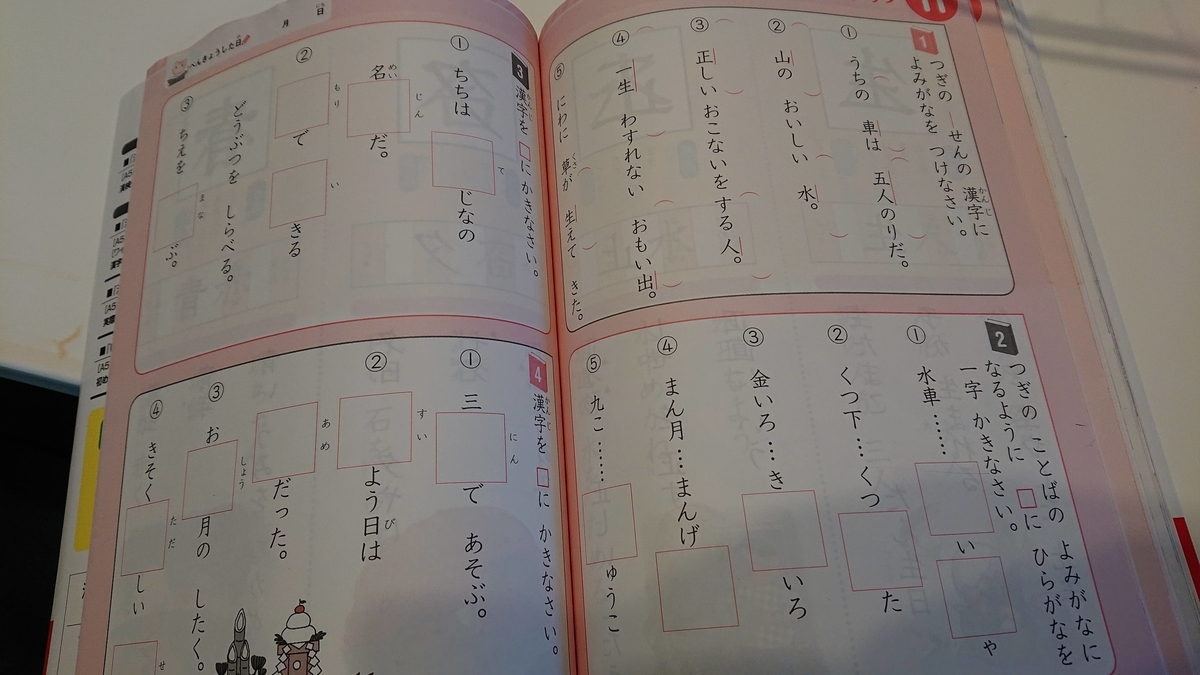 11
1
つぎの ―せんの 漢字に
かんじ
よみがなを つけなさい。
① うちの 車は 五人のりだ。
② 山の おいしい 水。
③ 正しい おこないを する 人。
④ 一生 わすれない おもい出。
⑤ にわに 草が 生えて きた。
くさ
2
つぎの ことばの よみがなに
なるように □に ひらがなを
一字 かきなさい。
① 水車……□い□や
② くつ下…くつ□た
③ 金いろ…き□いろ
④ まん月…まんげ□
⑤ 九こ……□ゅうこ
3
漢字を □に かきなさい。
かんじ
① ちちは □じなの
て
名□だ。
めい じん
② □で □きる
もり い
どうぶつを しらべる。
③ ちえを □ぶ。
まな
べんきょうした日
月 日
4
漢字を □に かきなさい。
かんじ
① 三□で あそぶ。
にん
② □よう日は
すい び
□だった。
あめ
③ お□月の したく。
しょう
④ きそく□しい
ただ
せ